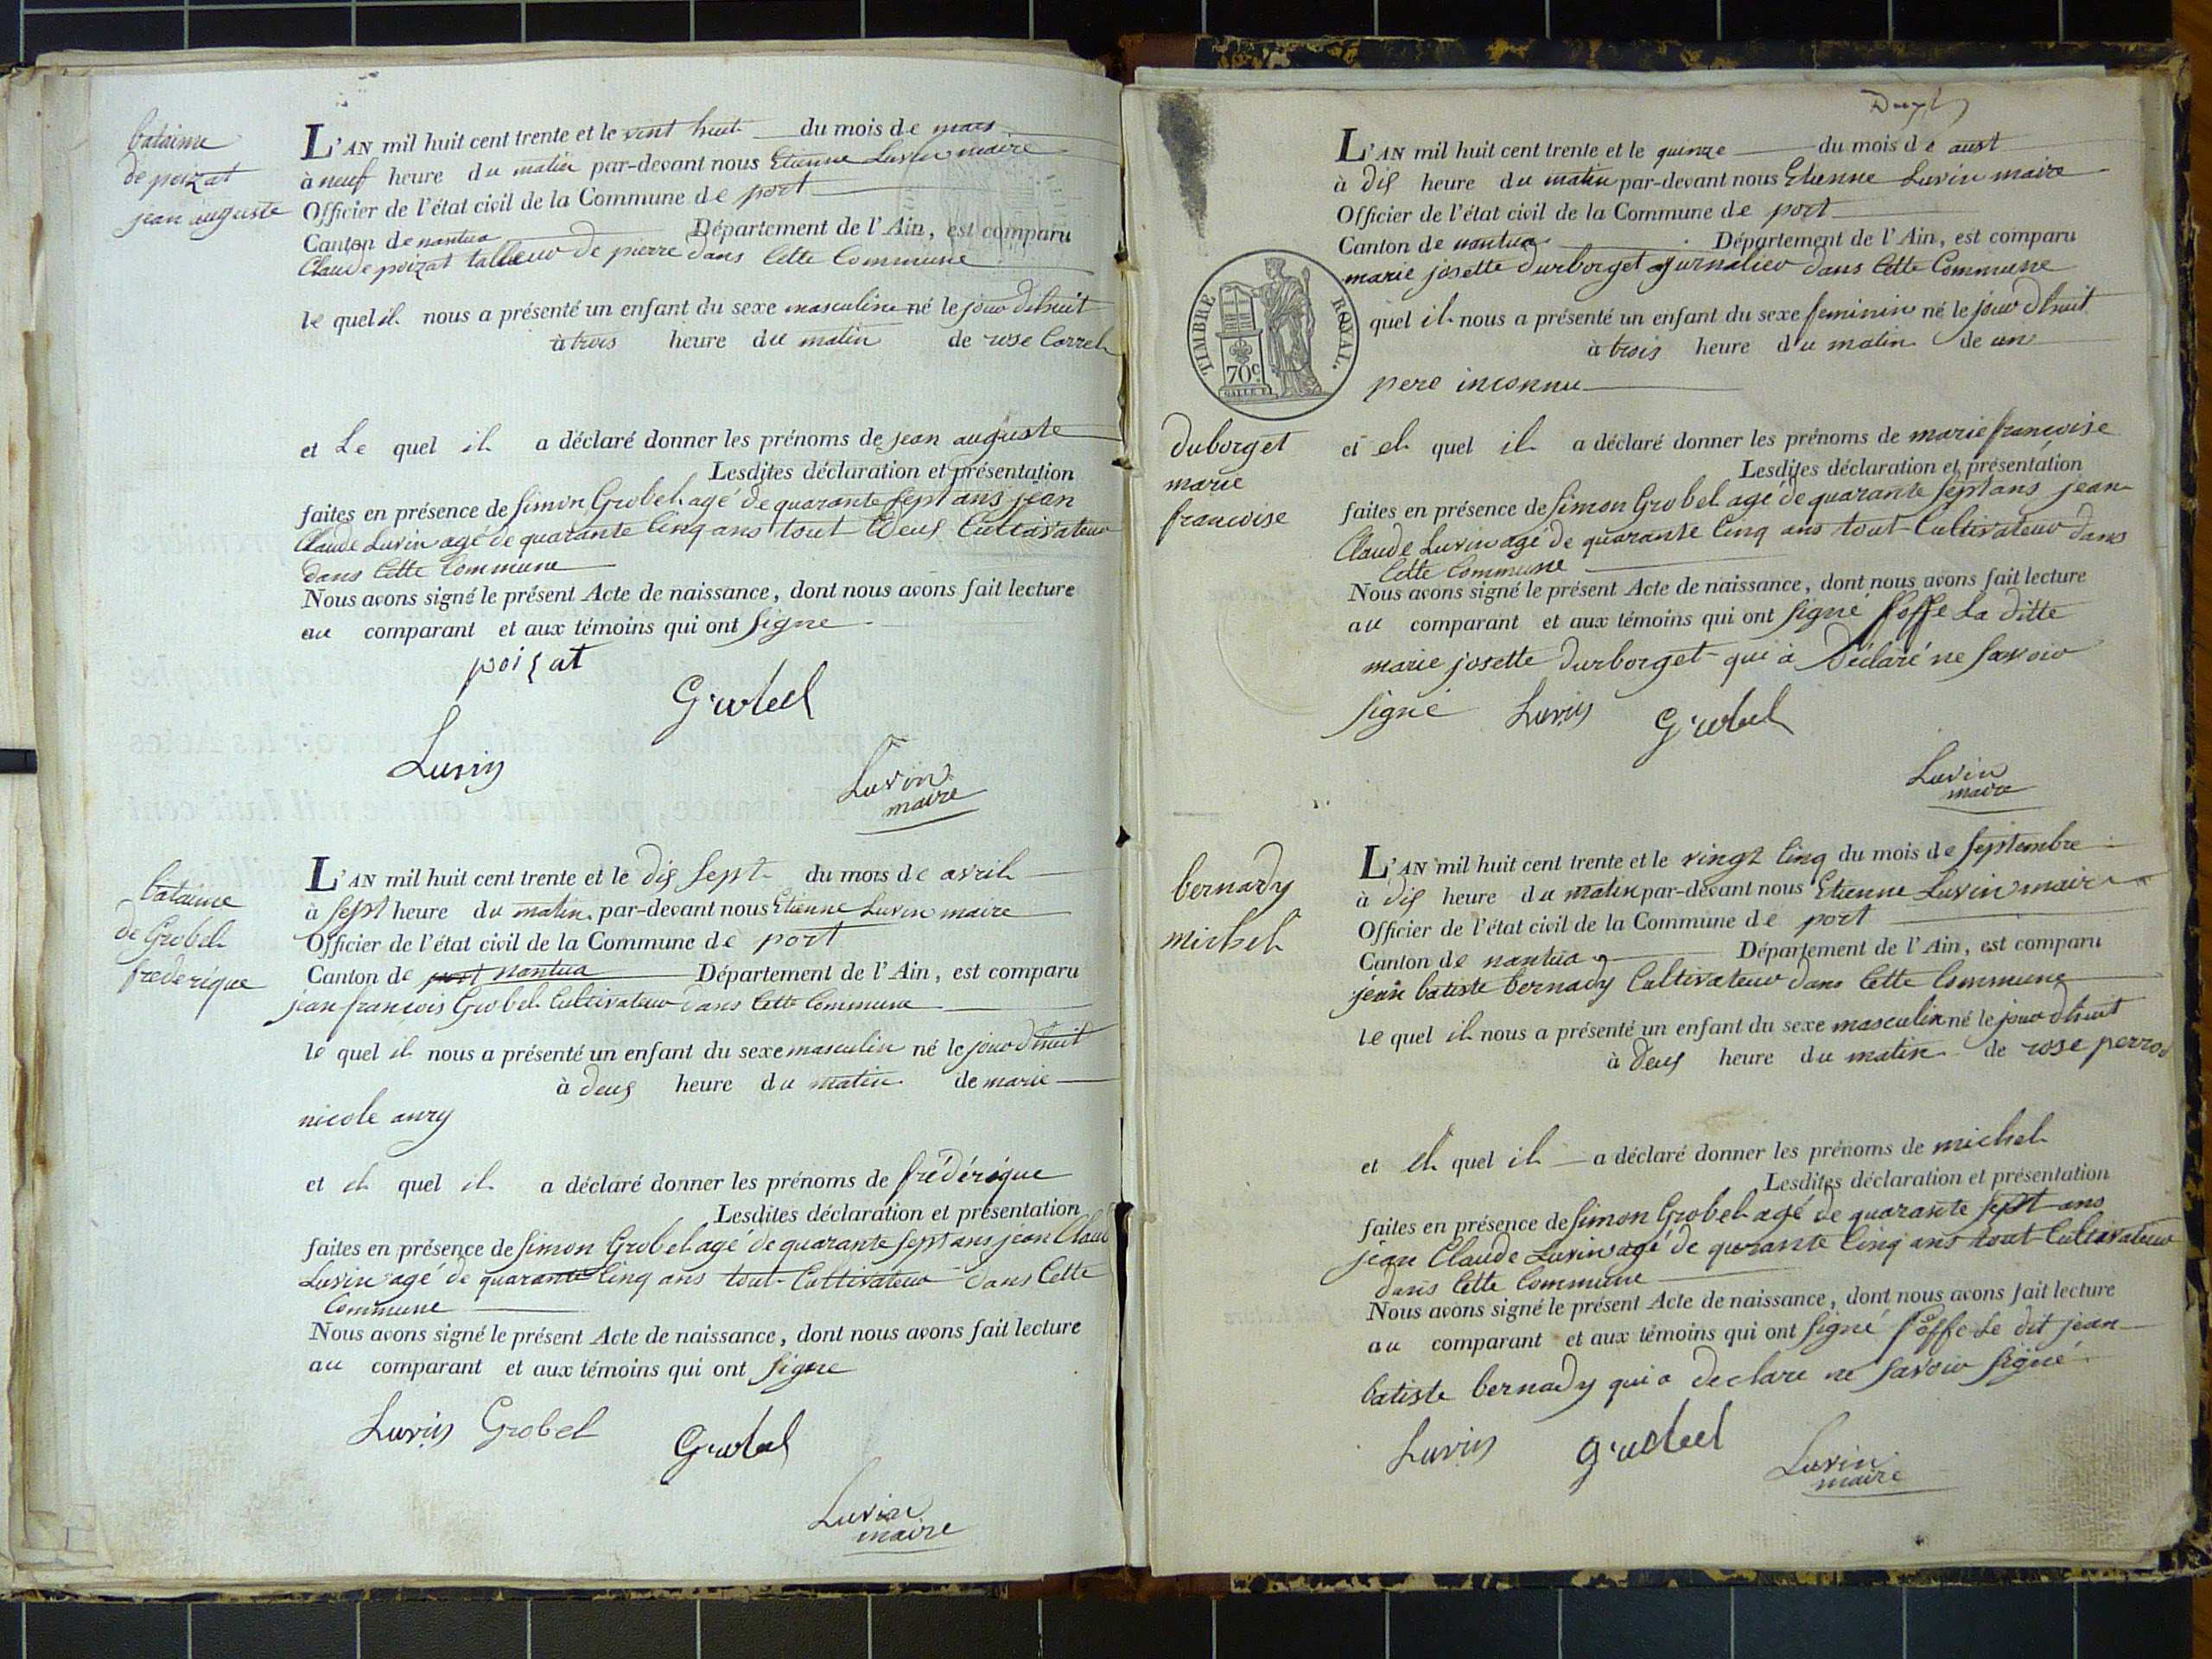 bataime
de poizat
jean auguste
L'AN mil huit cent trente et le vint huit du mois de mars
à neuf heure du matin par-devant nous Etienne Luvin maire
Officier de l'état civil de la Commune de port
Canton de nantua Département de l'Ain, est comparu
Claude poizat talleur de pierre dans Cette Commune
le quel il nous a présenté un enfant du sexe masculin né le jour dhuit
à trois heure du matin de rose Carrel
et Le quel il a déclaré donner les prénoms de jean auguste
Lesdites déclaration et présentation
faites en présence de Simon Grobel agé de quarante sept ans jean
Claude Luvin agé de quarante Cinq ans tout Deus Cultivateur
dans Cette Commune
Nous avons signé le présent Acte de naissance, dont nous avons fait lecture
au comparant et aux témoins qui ont signe
poizat
Grobel
Luvin
Luvin
maire
bataime
de Grobel
frederique
L'AN mil huit cent trente et le dis sept du mois de avril
à sept heure du matin par-devant nous Etienne Luvin maire
Officier de l'état civil de la Commune de port
Canton de port nantua Département de l'Ain, est comparu
jean françois Grobel Cultivateur dans Cette Commune
le quel il nous a présenté un enfant du sexe masculin né le jour dhuit
à deus heure du matin de marie
nicole anry
et el quel il a déclaré donner les prénoms de frédérique
Lesdites déclaration et présentation
faites en présence de Simon Grobel agé de quarante sept ans jean Claud
Luvin agé de quarante Cinq ans tout Cultivateur dans Cette
Commune
Nous avons signé le présent Acte de naissance, dont nous avons fait lecture
au comparant et aux témoins qui ont signe
Luvin Grobel Grobel
Luvin
maire
L'AN mil huit cent trente et le quinze du mois de aust
à dis heure du matin par-devant nous Etienne Luvin maire
Officier de l'état civil de la Commune de port
Canton de nantua Département de l'Ain, est comparu
marie josette durborget journalier dans Cette Commune
quel il nous a présenté un enfant du sexe feminin né le jour dhuit
à trois heure du matin de un
pere inconnu
TIMBRE ROYAL.
70c
duborget
marie
francoise
et el quel il a déclaré donner les prénoms de marie françoise
Lesdites déclaration et présentation
faites en présence de Simon Grobel agé de quarante sept ans jean
Claude Luvin agé de quarante Cinq ans tout Cultivateur dans
Cette Commune
Nous avons signé le présent Acte de naissance, dont nous avons fait lecture
au comparant et aux témoins qui ont signé soffe La ditte
marie josette durborget qui a déclaré ne savoir
signé Luvin Grobel
Luvin
maire
bernardy
michel
L'AN mil huit cent trente et le vingt Cinq du mois de septembre
à dis heure du matin par-devant nous Etienne Luvin maire
Officier de l'état civil de la Commune de port
Canton de nantua Département de l'Ain, est comparu
jean batiste bernady Cultivateur dans Cette Commune
le quel il nous a présenté un enfant du sexe masculin né le jour dhuit
à deus heure du matin de rose perrod
et el quel il a déclaré donner les prénoms de michel
Lesdites déclaration et présentation
faites en présence de Simon Grobel agé de quarante sept ans
jean Claude Luvin agé de quarante Cinq ans tout Cultivateur
dans Cette Commune
Nous avons signé le présent Acte de naissance, dont nous avons fait lecture
au comparant et aux témoins qui ont signé soffe Le dit jean
batiste bernady qui a declare ne savoir signé
Luvin Grobel Luvin
maire